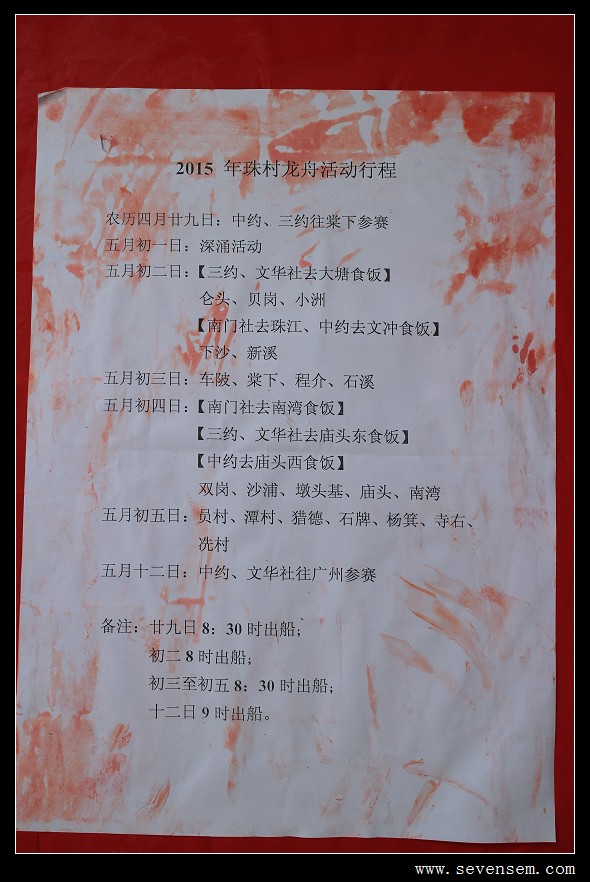 2015 年珠村龙舟活动行程
农历四月廿九日：中约、三约往棠下参赛
五月初一日：深涌活动
五月初二日：【三约、文华社去大塘食饭】
仑头、贝岗、小洲
【南门社去珠江、中约去文冲食饭】
下沙、新溪
五月初三日：车陂、棠下、程介、石溪
五月初四日：【南门社去南湾食饭】
【三约、文华社去庙头东食饭】
【中约去庙头西食饭】
双岗、沙浦、墩头基、庙头、南湾
五月初五日：员村、潭村、猎德、石牌、杨箕、寺右、
冼村
五月十二日：中约、文华社往广州参赛
备注：廿九日 8：30 时出船；
初二 8 时出船；
初三至初五 8：30 时出船；
十二日 9 时出船。
www.sevensem.com